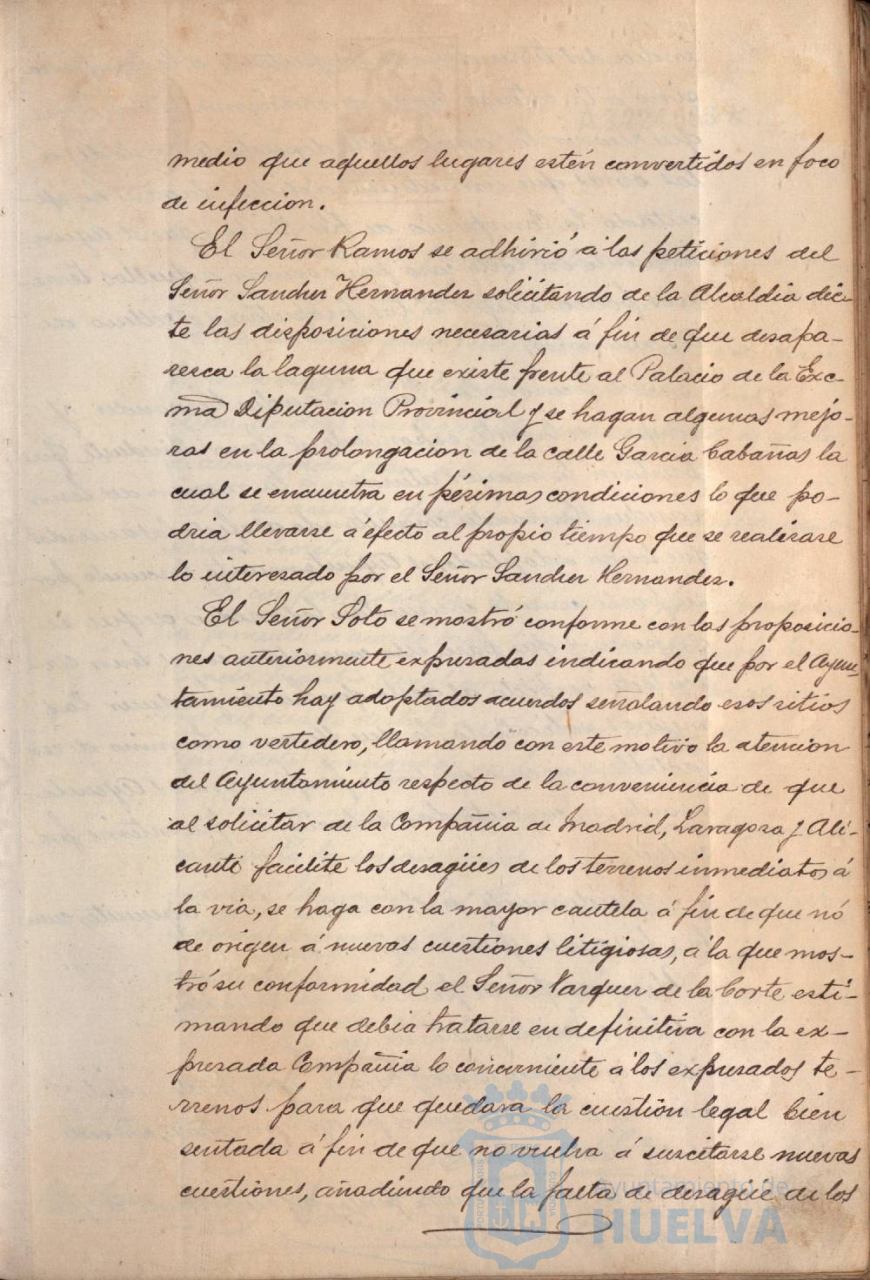 medio que aquellos lugares estén convertidos en foco
de infeccion.
El Señor Ramos se adhirió á las peticiones del
Señor Sanchez Hernandez solicitando de la Alcaldia dic-
te las disposiciones necesarias á fin de que desapa-
resca la laguna que existe frente al Palacio de la Exc-
ma Diputacion Provincial y se hagan algunas mejo-
ras en la prolongacion de la calle Garcia Cabañas la
cual se encuentra en pésimas condiciones lo que po-
dria llevarse á efecto al propio tiempo que se realizase
lo interesado por el Señor Sanchez Hernandez.
El Señor Soto se mostró conforme con las proposicio-
nes anteriormente expresadas indicando que por el Ayun-
tamiento hay adoptados acuerdos señalando esos sitios
como vertedero, llamando con este motivo la atencion
del Ayuntamiento respecto de la conveniencia de que
al solicitar de la Compañia de Madrid, Zaragoza y Ali-
cante facilite los desagües de los terrenos inmediatos á
la via, se haga con la mayor cautela á fin de que nó
de origen á nuevas cuestiones litigiosas, á la que mos-
tró su conformidad el Señor Vazquez de la Corte esti-
mando que debia tratarse en definitiva con la ex-
presada Compañia lo concerniente á los expresados te-
rrenos para que quedara la cuestión legal bien
sentada á fin de que no vuelva á suscitarse nuevas
cuestiones, añadiendo que la falta de desagüe de los
Ayuntamiento de
HUELVA